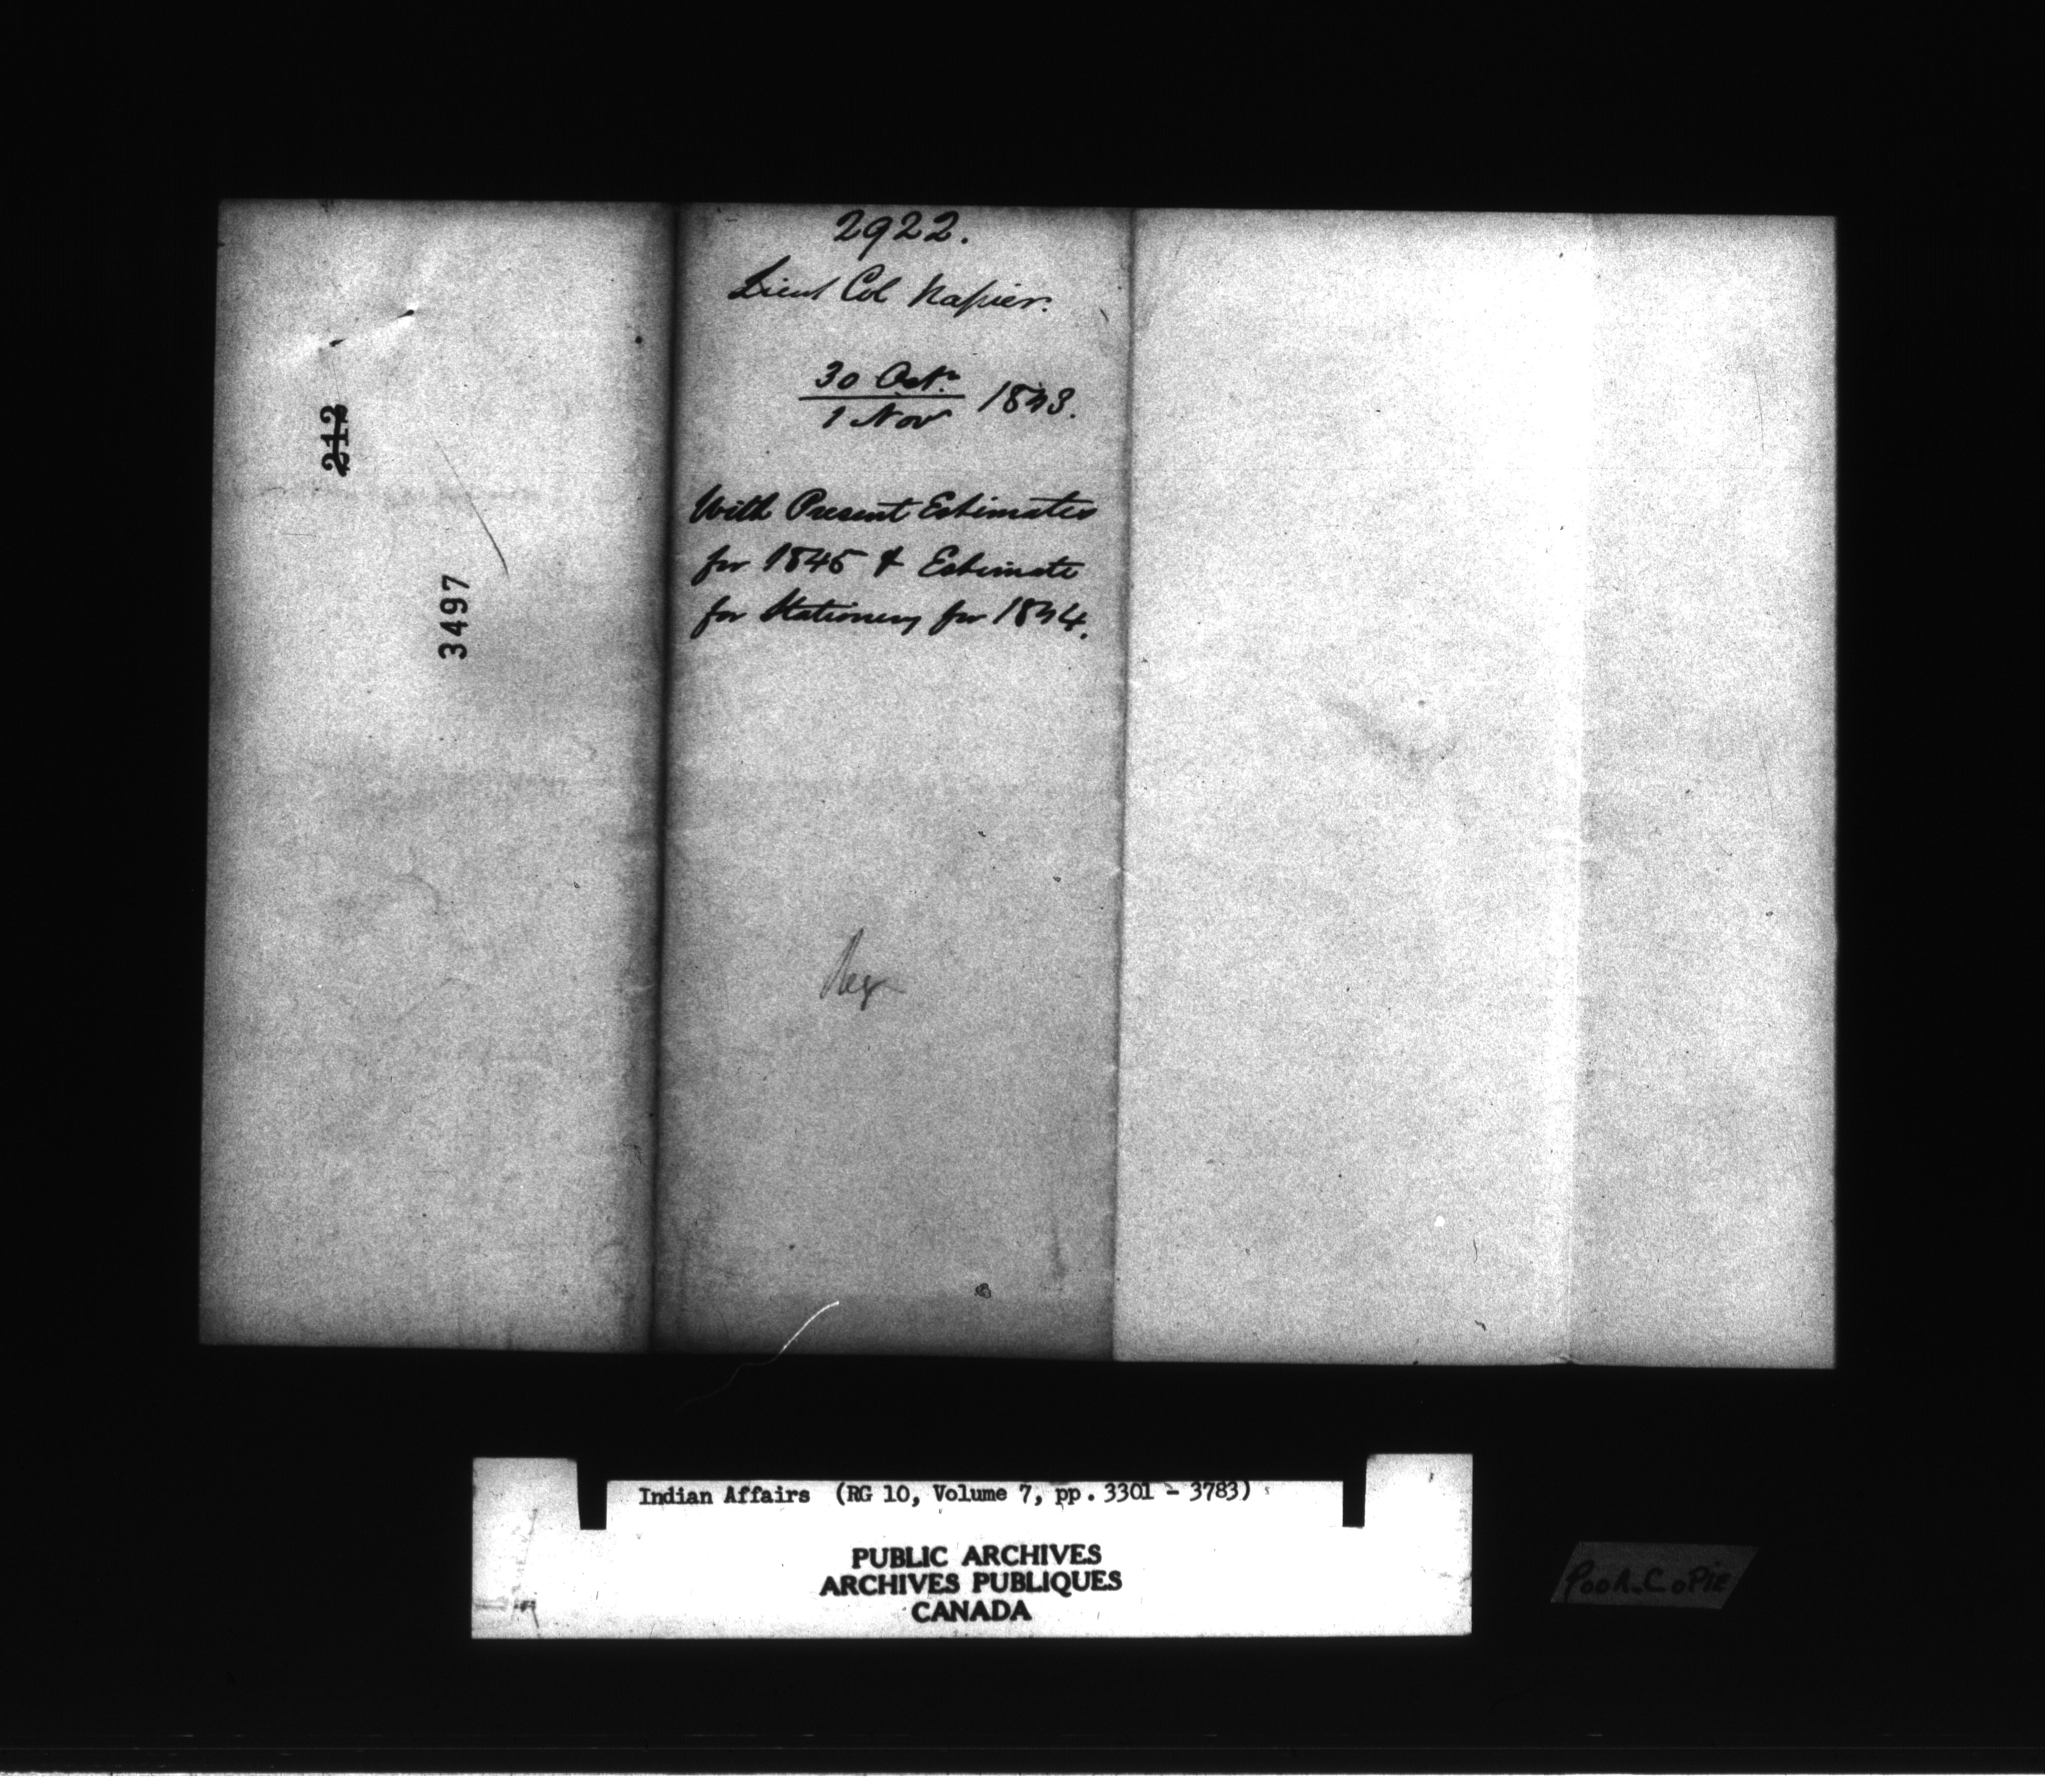 212
3497
2922.
Lieut Col Napier.
30 Octr.
1 Nov
1843.
With Present Estimates
for 1845 & Estimate
for Stationery for 1844.
Indian Affairs (RG 10, Volume 7, pp. 3301 - 3783)
PUBLIC ARCHIVES
ARCHIVES PUBLIQUES
CANADA
POOR COPIE